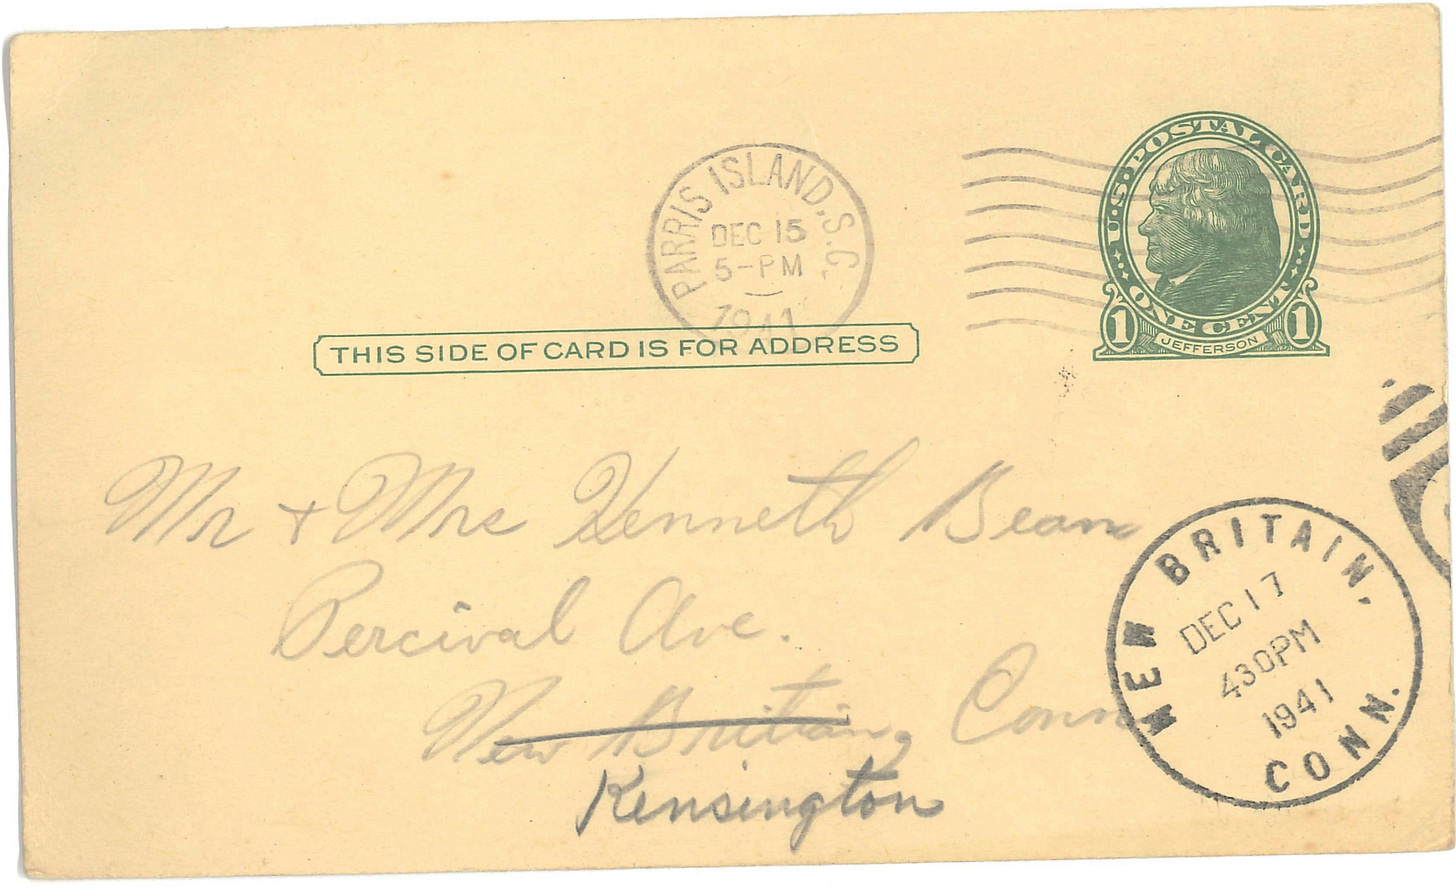 U.S. POSTAL CARD
ONE CENT
1 JEFFERSON 1
PARRIS ISLAND, S.C.
DEC 15
5-PM
1941
THIS SIDE OF CARD IS FOR ADDRESS
Mr + Mrs Kenneth Bean
Percival Ave.
New Britain, Conn
Kensington
NEW BRITAIN, CONN.
DEC 17
430PM
1941